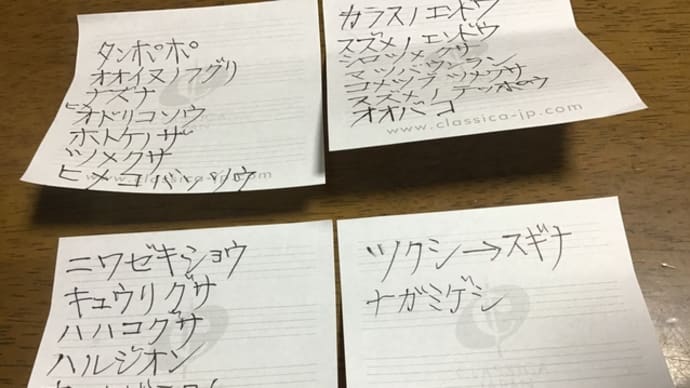 タンポポ
オオイヌノフグリ
ナズナ
オドリコソウ
ホトケノザ
ツメクサ
ヒメコバンソウ
www.classica-jp.com
カラスノエンドウ
スズメノエンドウ
シロツメクサ
マツバウンラン
コメツブツメクサ
スズメノテッポウ
オオバコ
www.classica-jp.com
ニワゼキショウ
キュウリグサ
ハハコグサ
ハルジオン
ツクシ→スギナ
ナガミゲシ